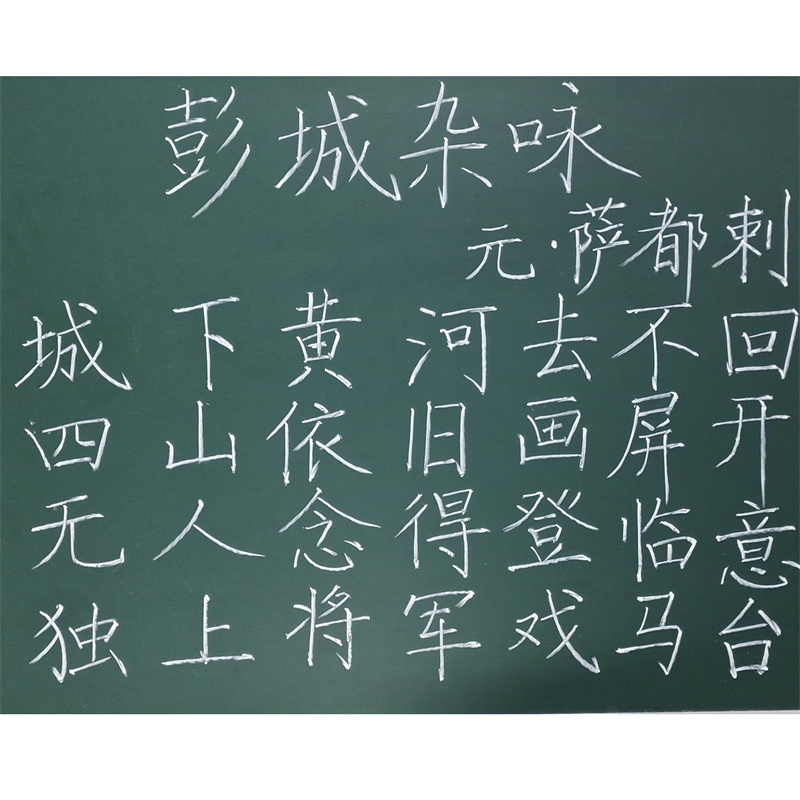 彭城杂咏
元·萨都刺
城下黄河去不回
四山依旧画屏开
无人念得登临意
独上将军戏马台